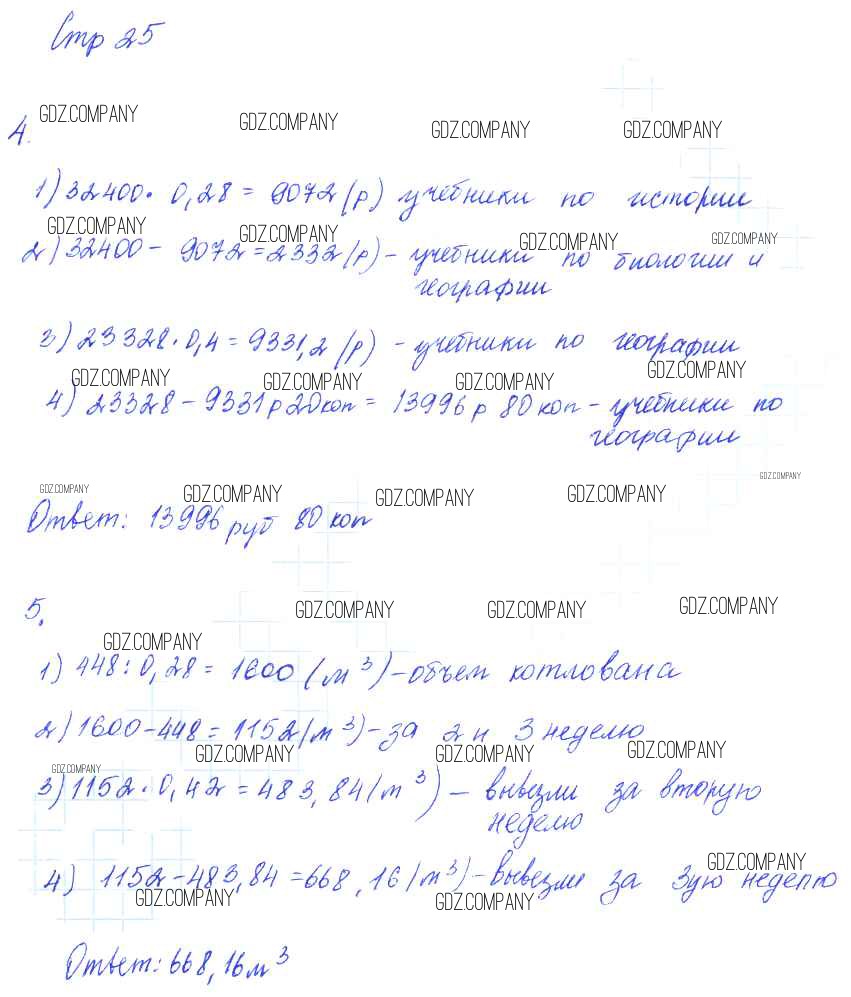 Стр 25
GDZ.COMPANY GDZ.COMPANY GDZ.COMPANY GDZ.COMPANY
4.
1) 32400 · 0,28 = 9072 (р) учебники по истории
GDZ.COMPANY GDZ.COMPANY GDZ.COMPANY GDZ.COMPANY
2) 32400 - 9072 = 2332 (р) - учебники по биологии и
географии
3) 23328 · 0,4 = 9331,2 (р) - учебники по географии
GDZ.COMPANY GDZ.COMPANY GDZ.COMPANY GDZ.COMPANY
4) 23328 - 9331 р 20 коп = 13996 р 80 коп - учебники по
географии
GDZ.COMPANY GDZ.COMPANY GDZ.COMPANY GDZ.COMPANY GDZ.COMPANY
Ответ: 13996 руб 80 коп
5.
GDZ.COMPANY GDZ.COMPANY GDZ.COMPANY GDZ.COMPANY
1) 448 : 0,28 = 1600 (м³) - объем котлована
2) 1600 - 448 = 1152 (м³) - за 2 и 3 неделю
GDZ.COMPANY GDZ.COMPANY GDZ.COMPANY GDZ.COMPANY
3) 1152 · 0,42 = 483,84 (м³) - вывезли за вторую
неделю
GDZ.COMPANY
4) 1152 - 483,84 = 668,16 (м³) - вывезли за 3ую неделю
GDZ.COMPANY GDZ.COMPANY
Ответ: 668,16 м³